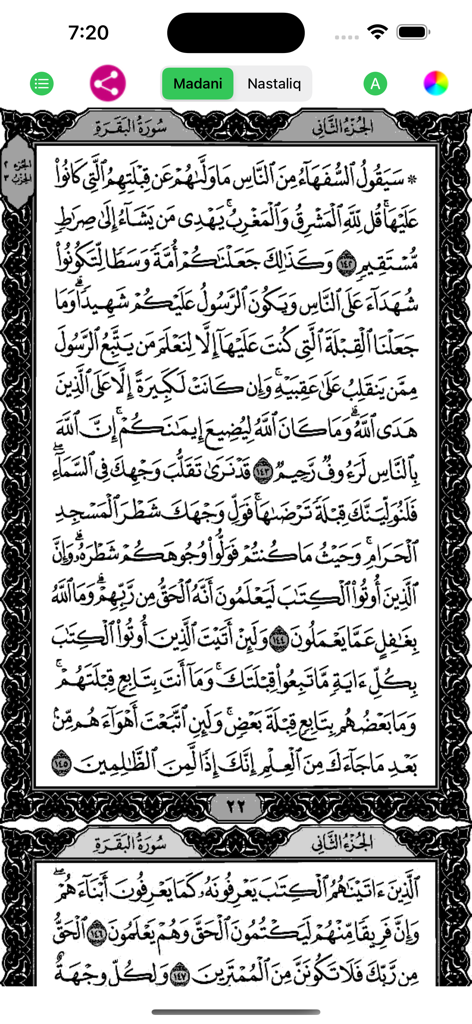 7:20
Madani
Nastaliq
A
سُورَةُ البَقَرَةِ
الجُزْءُ الثَّانِي
الجزء ٢
الحزب ٣
۞ سَيَقُولُ ٱلسُّفَهَآءُ مِنَ ٱلنَّاسِ مَا وَلَّىٰهُمْ عَن قِبْلَتِهِمُ ٱلَّتِى كَانُوا۟
عَلَيْهَا ۚ قُل لِّلَّهِ ٱلْمَشْرِقُ وَٱلْمَغْرِبُ ۚ يَهْدِى مَن يَشَآءُ إِلَىٰ صِرَٰطٍ
مُّسْتَقِيمٍ ١٤٢ وَكَذَٰلِكَ جَعَلْنَٰكُمْ أُمَّةً وَسَطًا لِّتَكُونُوا۟
شُهَدَآءَ عَلَى ٱلنَّاسِ وَيَكُونَ ٱلرَّسُولُ عَلَيْكُمْ شَهِيدًا ۗ وَمَا
جَعَلْنَا ٱلْقِبْلَةَ ٱلَّتِى كُنتَ عَلَيْهَآ إِلَّا لِنَعْلَمَ مَن يَتَّبِعُ ٱلرَّسُولَ
مِمَّن يَنقَلِبُ عَلَىٰ عَقِبَيْهِ ۚ وَإِن كَانَتْ لَكَبِيرَةً إِلَّا عَلَى ٱلَّذِينَ
هَدَى ٱللَّهُ ۗ وَمَا كَانَ ٱللَّهُ لِيُضِيعَ إِيمَٰنَكُمْ ۚ إِنَّ ٱللَّهَ
بِٱلنَّاسِ لَرَءُوفٌ رَّحِيمٌ ١٤٣ قَدْ نَرَىٰ تَقَلُّبَ وَجْهِكَ فِى ٱلسَّمَآءِ ۖ
فَلَنُوَلِّيَنَّكَ قِبْلَةً تَرْضَىٰهَا ۚ فَوَلِّ وَجْهَكَ شَطْرَ ٱلْمَسْجِدِ
ٱلْحَرَامِ ۚ وَحَيْثُ مَا كُنتُمْ فَوَلُّوا۟ وُجُوهَكُمْ شَطْرَهُۥ ۗ وَإِنَّ
ٱلَّذِينَ أُوتُوا۟ ٱلْكِتَٰبَ لَيَعْلَمُونَ أَنَّهُ ٱلْحَقُّ مِن رَّبِّهِمْ ۗ وَمَا ٱللَّهُ
بِغَٰفِلٍ عَمَّا يَعْمَلُونَ ١٤٤ وَلَئِنْ أَتَيْتَ ٱلَّذِينَ أُوتُوا۟ ٱلْكِتَٰبَ
بِكُلِّ ءَايَةٍ مَّا تَبِعُوا۟ قِبْلَتَكَ ۚ وَمَآ أَنتَ بِتَابِعٍ قِبْلَتَهُمْ ۚ
وَمَا بَعْضُهُم بِتَابِعٍ قِبْلَةَ بَعْضٍ ۚ وَلَئِنِ ٱتَّبَعْتَ أَهْوَآءَهُم مِّنۢ
بَعْدِ مَا جَآءَكَ مِنَ ٱلْعِلْمِ ۙ إِنَّكَ إِذًا لَّمِنَ ٱلظَّٰلِمِينَ ١٤٥
٢٢
سُورَةُ البَقَرَةِ
الجُزْءُ الثَّانِي
ٱلَّذِينَ ءَاتَيْنَٰهُمُ ٱلْكِتَٰبَ يَعْرِفُونَهُۥ كَمَا يَعْرِفُونَ أَبْنَآءَهُمْ ۖ
وَإِنَّ فَرِيقًا مِّنْهُمْ لَيَكْتُمُونَ ٱلْحَقَّ وَهُمْ يَعْلَمُونَ ١٤٦ ٱلْحَقُّ
مِن رَّبِّكَ ۖ فَلَا تَكُونَنَّ مِنَ ٱلْمُمْتَرِينَ ١٤٧ وَلِكُلٍّ وِجْهَةٌ